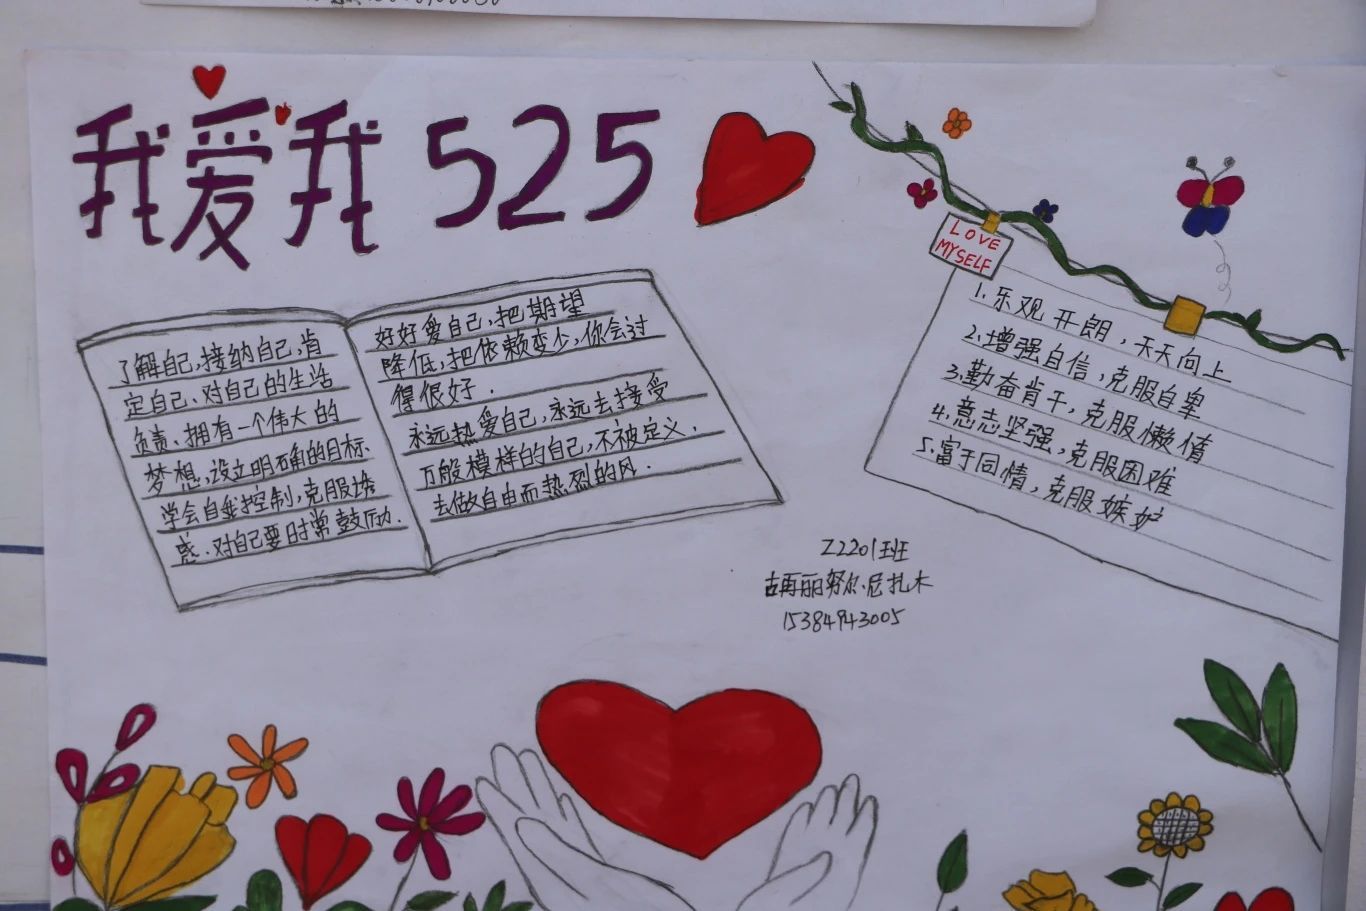 我爱我525
了解自己,接纳自己,肯
定自己、对自己的生活
负责、拥有一个伟大的
梦想,设立明确的目标.
学会自我控制,克服诱
惑、对自己要时常鼓励.
好好爱自己,把期望
降低,把依赖变少,你会过
得很好.
永远热爱自己,永远去接受
万般模样的自己,不被定义.
去做自由而热烈的风.
LOVE
MYSELF
1.乐观开朗,天天向上
2.增强自信,克服自卑
3.勤奋肯干,克服懒惰
4.意志坚强,克服困难
5.富于同情,克服嫉妒
Z2201班
古再丽努尔·尼扎木
15384943005